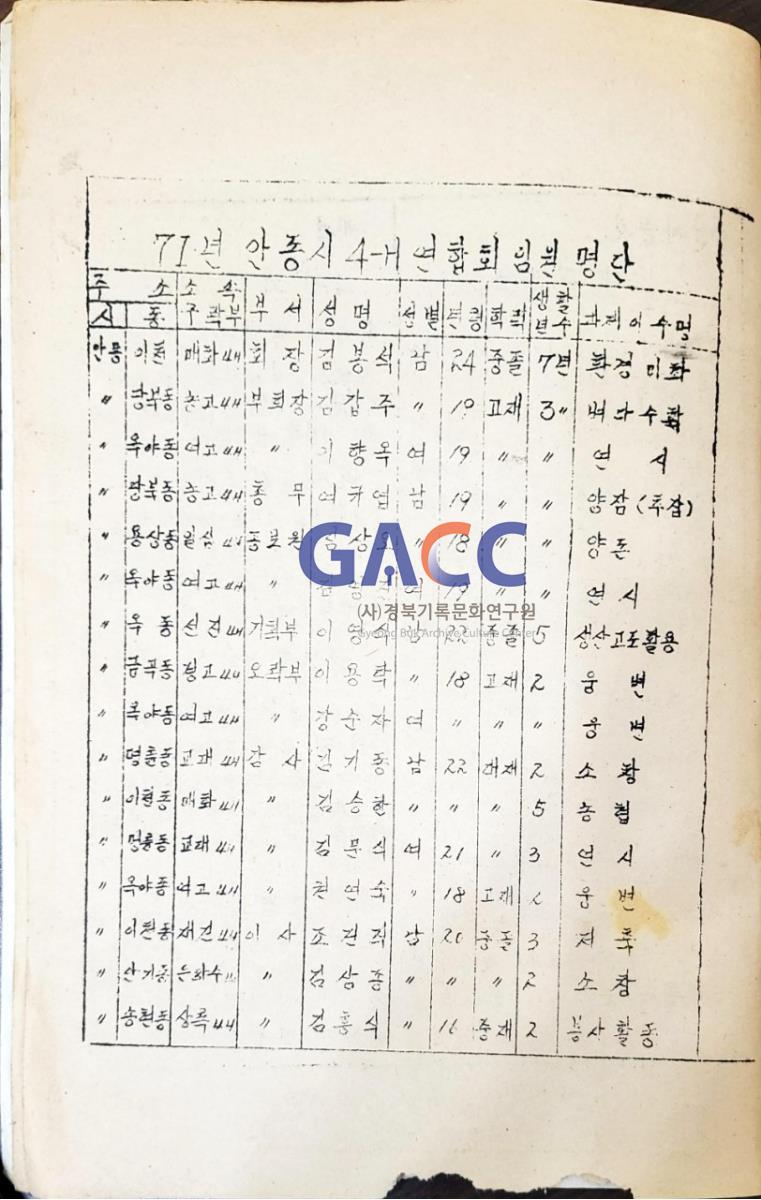 71년 안동시 4-H 연합회 임원 명단
주 소 소 속 부 서 성 명 성별 연령 학력 생활년수 과제이수명
시 동 구락부
안동 이천 매화4H 회 장 김봉석 남 24 중졸 7년 환경미화
〃 광북동 농고4H 부회장 김갑주 〃 19 고재 3〃 벼다수확
〃 옥야동 여고4H 〃 이향옥 여 19 〃 〃 연 시
〃 광북동 농고4H 총 무 여규업 남 19 〃 〃 양잠(추잠)
〃 용상동 〃 18 〃 〃 양돈
〃 옥야동 여고4H 〃 여 19 〃 〃 연 시
〃 옥 동 기획부 이영식 남 22 중졸 5 생산고도활용
〃 금곡동 경고4H 오락부 이용탁 〃 18 고재 2 웅 변
〃 옥야동 여고4H 〃 강순자 여 〃 〃 〃 웅 변
〃 명륜동 교대4H 감 사 김기동 남 22 대재 2 소 창
〃 이천동 매화4H 〃 김승한 〃 〃 〃 5 농
〃 명륜동 교대4H 〃 김문식 여 21 〃 3 연 시
〃 옥야동 여고4H 〃 천연숙 〃 18 고재 2 웅 변
〃 이천동 재건4H 이 사 조건직 남 20 중졸 3 저 축
〃 은화수 〃 김삼종 〃 〃 〃 2 소 창
〃 송현동 상록4H 〃 김홍식 〃 16 중재 2 봉사활동
GACC
(사)경북기록문화연구원
Gyeong Buk Archive Culture Center